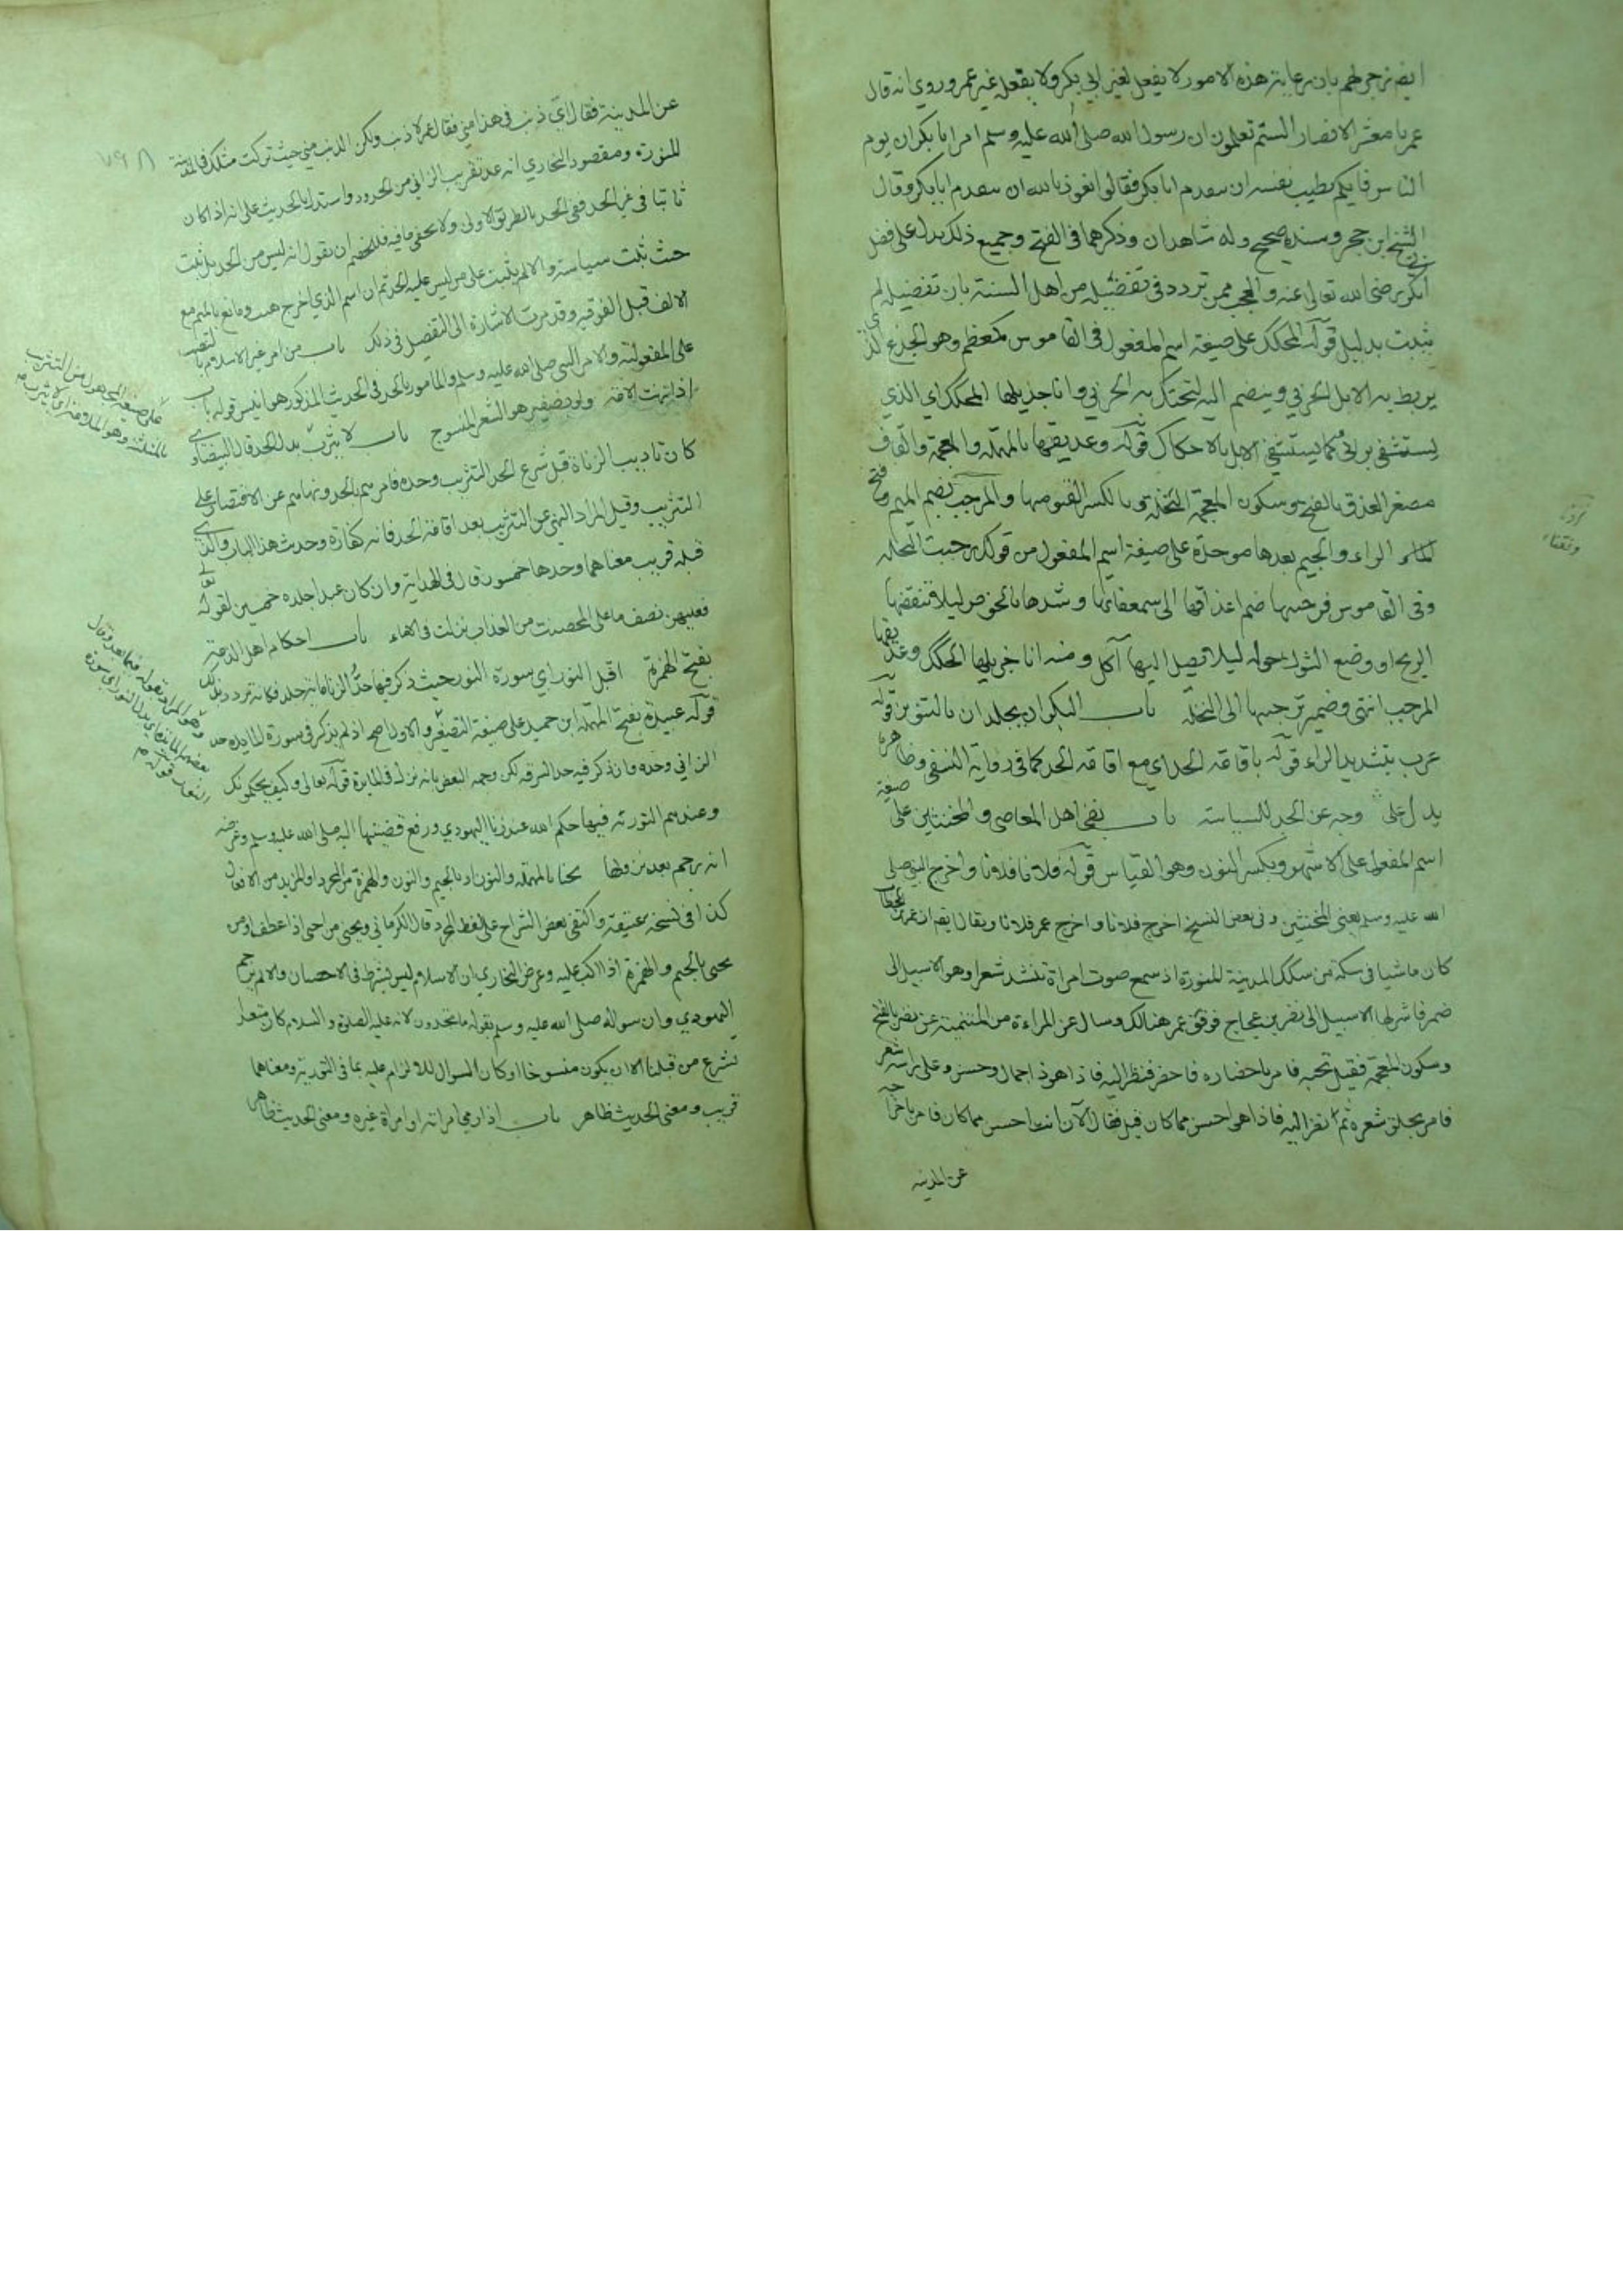 ايضا زجر لهم بان رعاية هذه الامور لا يفعل لغير ابي بكر ولا يفعله غير عمر وروي انه قال
عمر يا معشر الانصار الستم تعلمون ان رسول الله صلى الله عليه وسلم امر ابا بكر ان يوم
الناس فايكم يطيب نفسه ان يتقدم ابا بكر فقالوا نعوذ بالله ان نتقدم ابا بكر وقال
الشيخ ابن حجر وسنده صحيح وله شاهدان وذكرهما في الفتح وجميع ذلك يدل على فضل
ابي بكر رضي الله تعالى عنه والعجب ممن تردد في تفضيله من اهل السنة بان تفضيله لم
يثبت بدليل قوله المحكك على صيغة اسم المفعول في القاموس كمعظم وهو الجذع الذي
يربط به الابل الجربى وينضم اليه لتحتك به الجربى وانا جذيلها المحكك اي الذي
يستشفى برائي كما يستشفي الابل بالاحتكاك قوله وعذيقها بالمهملة والمعجمة والقاف
مصغر العذق بالفتح وسكون المعجمة النخلة وبالكسر القنو منها والمرجب بضم الميم وفتح
الراء والجيم بعدها موحدة على صيغة اسم المفعول من قولك رجبت النخلة
وفي القاموس ضم اعذاقها الى سعفاتها وشدها بالخوص ليلا تنفضها
الريح او وضع الشوك حوله ليلا يصل اليها آكل ومنه انا جذيلها المحكك وعذيقها
المرجب انتهى وضمير ترجبها الى النخلة باب البكران يجلدان بالتنوين قوله
غرب بتشديد الراء قوله باقامة الحد اي مع اقامة الحد كما في رواية النسفي وظاهره
يدل على وجه عن الحد للسياسة باب نفي اهل المعاصي والمخنثين على صيغة
اسم المفعول على الاشهر وبكسر النون وهو القياس قوله فلانا فلانا واخرج النبي صلى
الله عليه وسلم يعني المخنثين وفي بعض النسخ اخرج فلانا واخرج عمر فلانا ويقال ان عمر بن الخطاب
كان ماشيا في سكة من سكك المدينة المنورة اذ سمع صوت امراة تنشد شعرا وهو الا سبيل الى
خمر فاشربها الا سبيل الى نصر بن حجاج فوقف عمر هنالك وسال عن المراءة من المتمنية عن نصر بالفتح
وسكون المعجمة فقيل تحبه فامر باحضاره فاحضر فنظر اليه فاذا هو ذا جمال وحسن وعلى راسه شعر
فامر بحلق شعره ثم نظر اليه فاذا هي احسن مما كان قبل فقال الآن انت احسن مما كان فامر باخراجه
عن المدينة
عن المدينة فقال اي ذنب في هذا مني فقال عمر لا ذنب ولكن الذنب مني حيث تركت مثلك في المدينة
المنورة ومقصود البخاري انه عد تغريب الزاني من الحدود واستدل بالحديث على انه اذا كان
ثابتا في غير الحد ففي الحد بالطريق الاولى ولا يخفى ما فيه فللخصم ان يقول انه ليس من الحد بل ثبت
حيث ثبت سياسة والا لم يثبت على من ليس عليه الحد ثم ان اسم الذي اخرج هيت ومانع بالميم مع
الالف قبل الفوقية وقد مرت الاشارة الى التفصيل في ذلك باب من امر غير الامام بالنصب
على المفعولية والامر النبي صلى الله عليه وسلم والمامور بالحد في الحديث المذكور هو انيس قوله باب
اذا زنت الامة ولو بضفير هو الشعر المنسوج باب لا يثرب بدل الحد قال البيضاوي
كان تاديب الزناة قبل شرع الحد التثريب وحده فامرهم بالحد ونهاهم عن الاقتصار على
التثريب وقيل المراد النهي عن التثريب بعد اقامة الحد فانه كفارة وحديث هذا الباب والذي
قبله قريب معناهما وحدها خمسون قال في الهداية وان كان عبدا جلده خمسين لقوله تعالى
فعليهن نصف ما على المحصنت من العذاب نزلت في الاماء باب احكام اهل الذمة
بفتح الهمزة اقبل النور اي سورة النور حيث ذكر فيها حد الزنا مائة جلد فكانه تردد في ذلك
قوله عبيدة بفتح المهملة ابن حميد على صيغة التصغير والاول اصح اذ لم يذكر في سورة المائدة حد
الزاني وحده وان ذكر فيه حد السرقة لكن وجه البعض بانه نزل في المائدة قوله تعالى وكيف يحكمونك
وعندهم التورىه فيها حكم الله عند زنا اليهودي ورفع قضيتها اليه صلى الله عليه وسلم وغرضه
انه رجم بعد نزولها يحنا بالمهملة والنون او بالجيم والنون والهمزة من المجرد او المزيد من الافعال
كذا في نسخة عتيقة واكتفى بعض الشراح على لفظ المجرد قال الكرماني ويحنى من احنى اذا عطف ومن
يجنى بالجيم والهمزة اذا اكب عليه وغرض البخاري ان الاسلام ليس بشرط في الاحصان والا لم يرجم
اليهودي وان سواله صلى الله عليه وسلم بقوله ما تجدون لانه عليه الصلوة والسلام كان متعبدا
بشرع من قبلنا الا ان يكون منسوخا او كان السوال للالزام عليه بما في التورية ومعناهما
قريب ومعنى الحديث ظاهر باب اذا رمي امراته او امراة غيره ومعنى الحديث ظاهر
على صيغة المجهول من التثريب